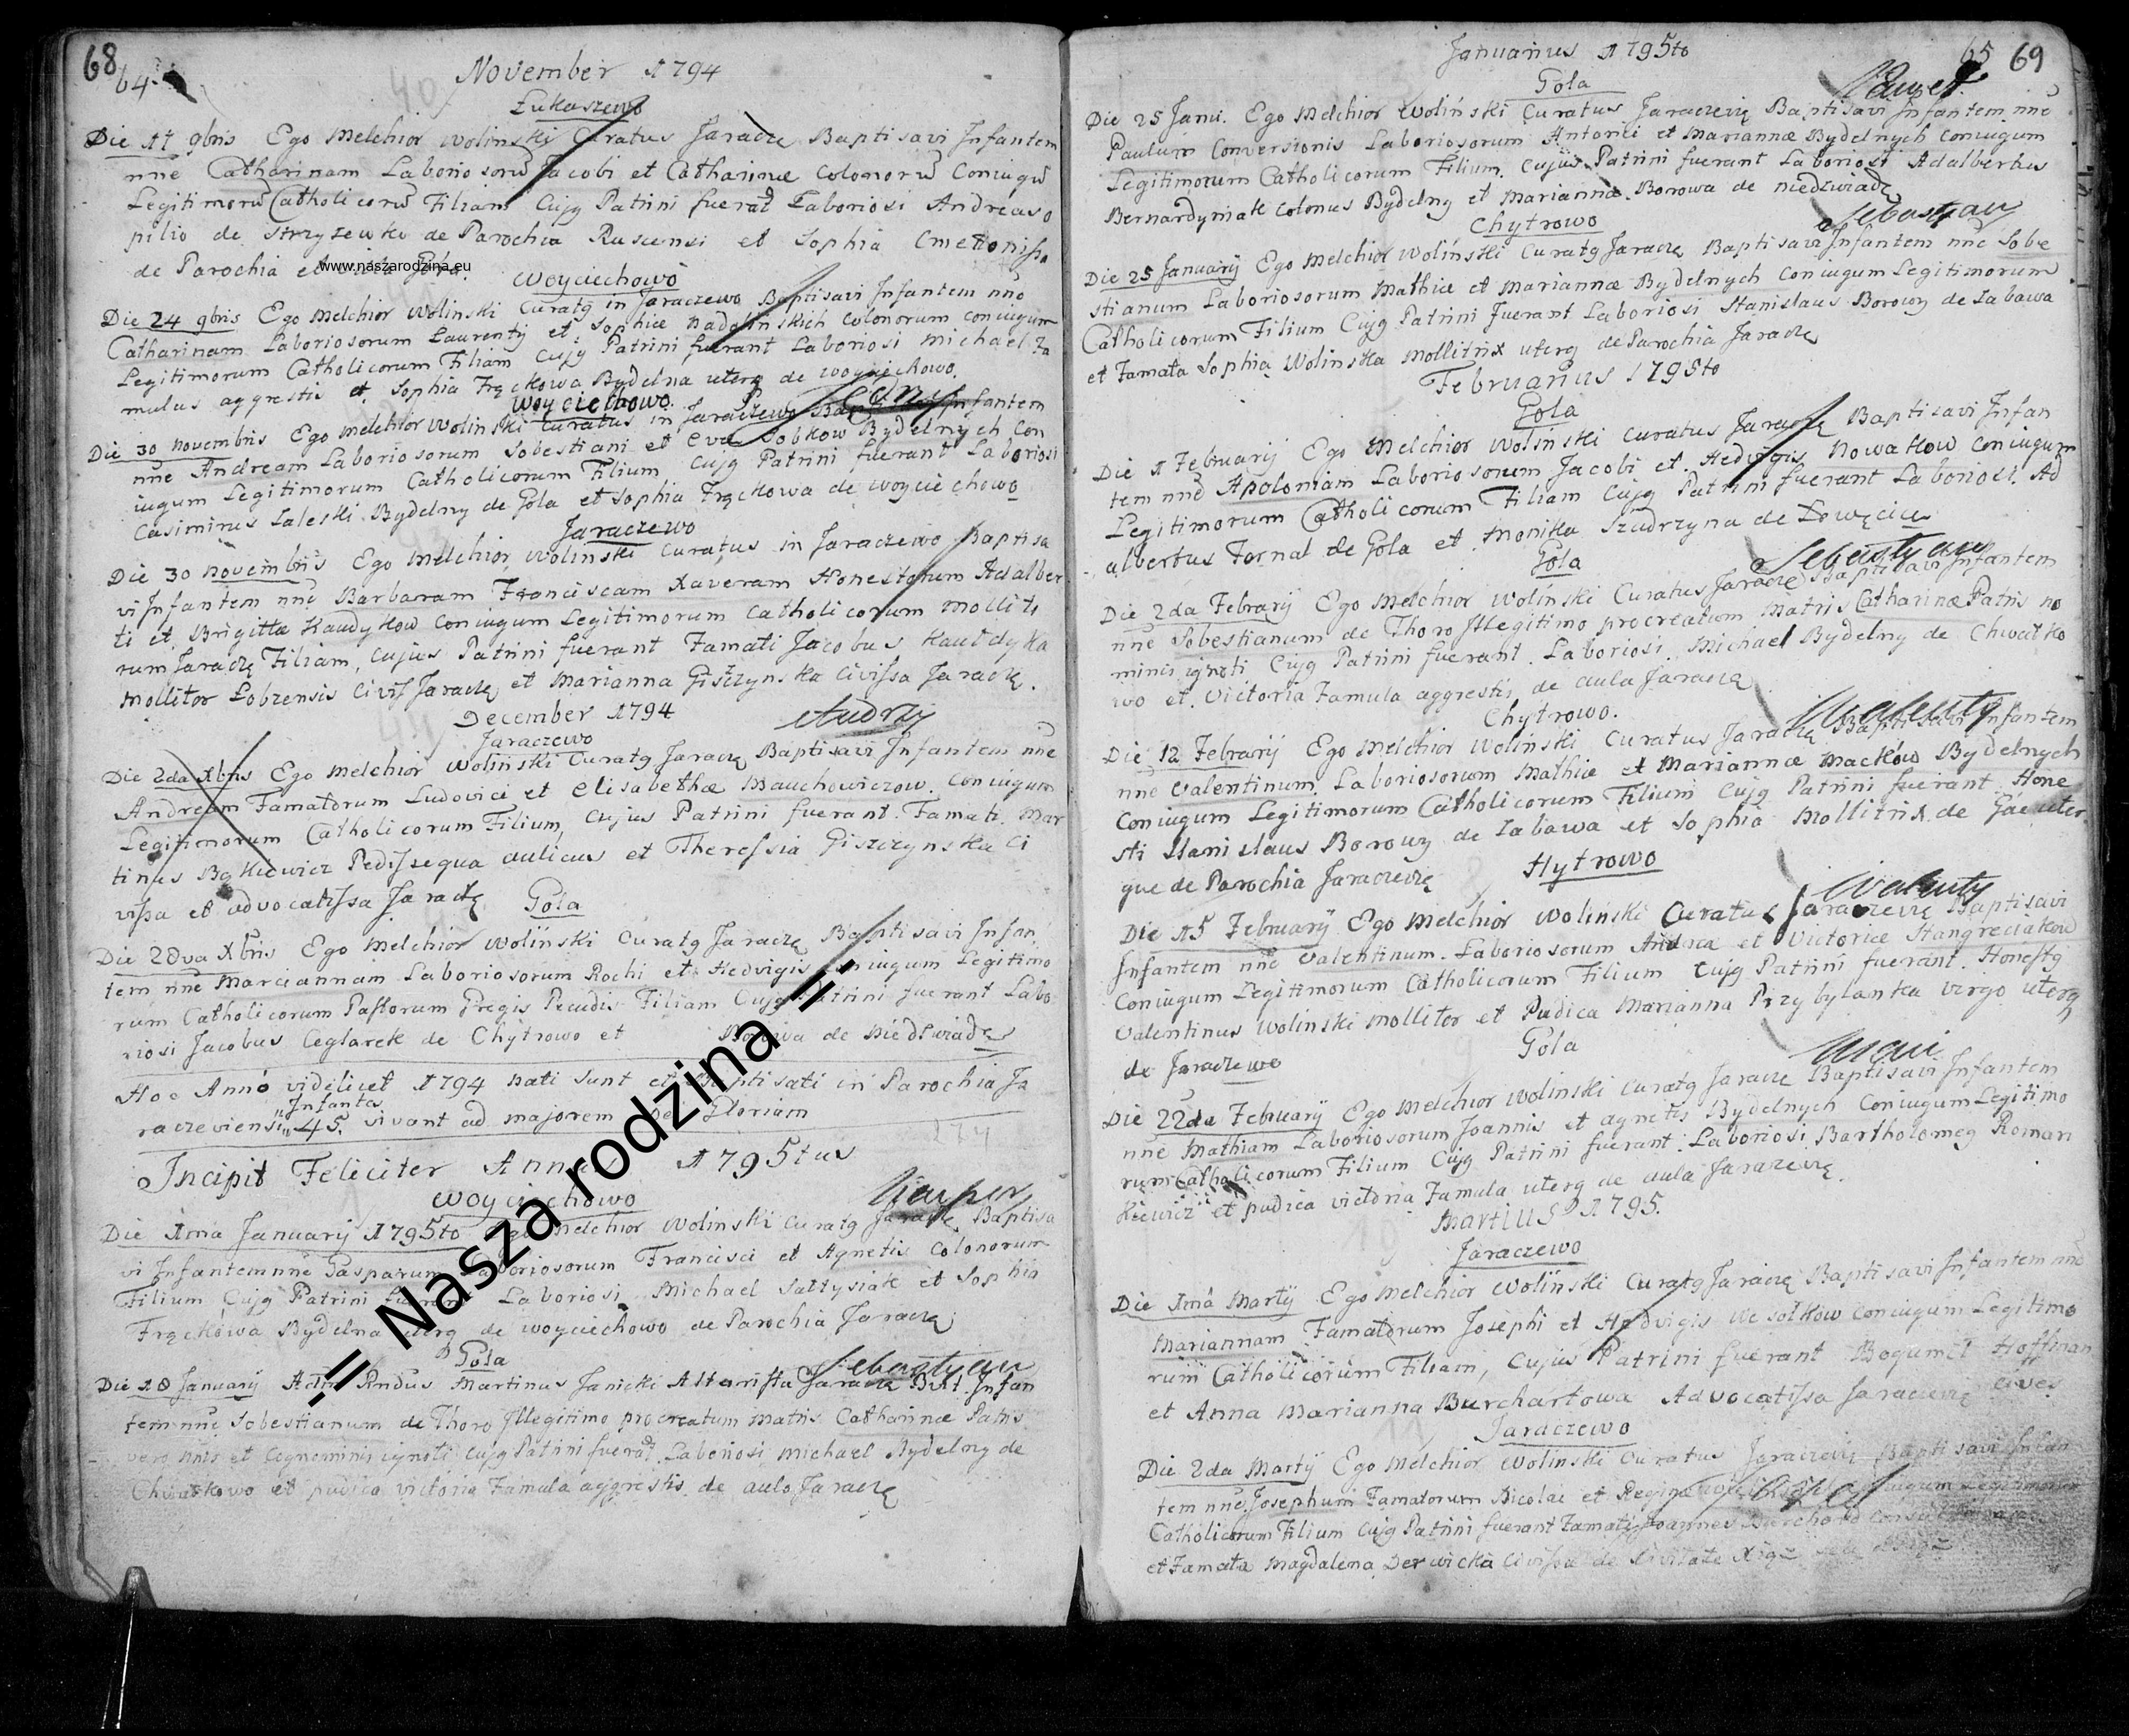 68
64
November 1794
Łukaszewo
Die 17 9bris Ego Melchior Wolinski Curatus Jaracze Baptisavi Infantem
nne Catharinam Laboriosorū Jacobi et Catharinæ Colonorū Coniugū
Legitimorū Catholicorū Filiam Cujg Patrini fuerat Laboriosi Andreas o
pilio de Strzyzewko de Parochia Ruscensi et Sophia Cmetonissa
de Parochia et
www.naszarodzina.eu
Woyciechowo
Die 24 9bris Ego Melchior Wolinski Curatg in Jaraczewo Baptisavi Infantem nne
Catharinam Laboriosorum Laurentij et Sophiæ Nadolinskich Colonorum Coniugum
Legitimorum Catholicorum Filiam Cujg Patrini fuerant Laboriosi Michael Fa
mulus aggrestis et Sophia Frąckowa Bydelna uterq de Woyciechowo.
Woyciechowo.
Die 30 Novembris Ego Melchior Wolinski Curatus in Jaraczewo Infantem
nne Andream Laboriosorum Sobestiani et Eva Sobkow Bydelnych Con
iugum Legitimorum Catholicorum Filium Cujg Patrini fuerant Laboriosi
Casimirus Zaleski Bydelny de Gola et Sophia Frąckowa de Woyciechowo
Jaraczewo
Die 30 Novembris Ego Melchior Wolinski Curatus in Jaraczewo Baptisa
vi Infantem nne Barbaram Franciscam Xaveram Honestorum Adalber
ti et Brigittæ Kaudykow Coniugum Legitimorum Catholicorum Molliti
rum Jaraczę Filiam, Cujus Patrini fuerant Famati Jacobus Kautdyka
Mollitor Łobzensis Civis Jaraczę et Marianna Giszzynska Civissa Jaraczę.
December 1794
Andrzy
Jaraczewo
Die 2da Xbris Ego Melchior Wolinski Curatg Jaraczę Baptisavi Infantem nne
Andream Famatorum Ludovici et Elisabethæ Mauchowiczow. Coniugum
Legitimorum Catholicorum Filium, Cujus Patrini fuerant Famati Mar
tinus Bąkiewicz Pedissequa aulicus et Theressia Giszczynska Ci
vissa et advocatissa Jaraczę
Gola
Die 2dva Xbris Ego Melchior Wolinski Curatg Jaraczę Baptisavi Infan
tem nne Marciannam Laboriosorum Rochi et Hedvigis Coniugum Legitimo
rum Catholicorum Pastorum Gregis Pecudis Filiam Cujg Patrini fuerant Labo
riosi Jacobus Ceglarek de Chytrowo et Borowa de Niedzwiadę
Hoc Anno videlicet 1794 Nati sunt et Baptisati in Parochia Ja
raczeviensi Infantes 45. vivant ad majorem Dei Gloriam
274
Incipit Feliciter Annus 1795tus
Woyciechowo
Kasper
Die 1ma Januarij 1795to Ego Melchior Wolinski Curatg Jaraczę Baptisa
vi Infantem nne Gasparum Laboriosorum Francisci et Agnetis Colonorum
Filium Cujg Patrini fuerant Laboriosi Michael Sałtysiak et Sophia
Frąckowa Bydelna uterq de Woyciechowo de Parochia Jaraczę
Gola
Sebastyan
Die 18 Januarij Adm Rndus Martinus Janicki Altarista Jaraczę Bapt. Infan
tem nne Sobestianum de Thoro Illegitimo procreatum Matris Catharinæ Patris
vero nnis et Cognominis ignoti Cujg Patrini fuerat Laboriosi Michael Bydelny de
Chwatkowo et pudica Victoria Famula aggrestis de aula Jaraczę
-= Nasza rodzina =-
65 69
Januarius 1795to
Gola
Paweł
Die 25 Janu. Ego Melchior Woliński Curatus Jaraczevię Baptisavi Infantem nne
Paulum Conversionis Laboriosorum Antonii et Mariannæ Bydelnych Coniugum
Legitimorum Catholicorum Filium. Cujus Patrini fuerant Laboriosi Adalbertus
Bernardyniak Colonus Bydelny et Marianna Borowa de Niedzwiadę
Chytrowo
Sebastyan
Die 25 Januarij Ego Melchior Woliński Curatg Jaraczę Baptisavi Infantem nne Sobe
stianum Laboriosorum Mathiæ et Mariannæ Bydelnych Coniugum Legitimorum
Catholicorum Filium Cujg Patrini Fuerant Laboriosi Stanislaus Borowy de Zabawa
et Famata Sophia Wolinska Mollitrix uterq de Parochia Jaraczę
Februarius 1795to
Gola
Die 1 Februarij Ego Melchior Woliński Curatus Jaraczę Baptisavi Infan
tem nne Apoloniam Laboriosorum Jacobi et Hedvigis Nowakow Coniugum
Legitimorum Catholicorum Filiam Cujg Patrini fuerant Laboriosi Ad
albertus Fornal de Gola et Monika Szudrzyna de Łowęcice
Gola
Sebastyan
Die 2da Febrarij Ego Melchior Wolinski Curatus Jaraczę Baptisavi Infantem
nne Sobestianum de Thoro Illegitimo procreatum Matris Catharinæ Patris no
minis ignoti Cujg Patrini fuerant Laboriosi Michael Bydelny de Chwatko
wo et Victoria Famula aggrestis de aula Jaraczę
Chytrowo.
Walenty
Die 12 Febrarij Ego Melchior Wolinski Curatus Jaraczę Baptisavi Infantem
nne Valentinum Laboriosorum Mathiæ et Mariannæ Maćków Bydelnych
Coniugum Legitimorum Catholicorum Filium Cujg Patrini fuerant Hone
sti Stanislaus Borowy de Zabawa et Sophia Mollitrix de Gae uter
que de Parochia Jaraczevię
Hytrowo
Walenty
Die 15 Februarij Ego Melchior Woliński Curatus Jaraczevię Baptisavi
Infantem nne Valentinum. Laboriosorum Andreæ et Victoriæ Stangreciakow
Coniugum Legitimorum Catholicorum Filium Cujg Patrini fuerant. Honestg
Valentinus Wolinski Mollitor et Pudica Marianna Przybylanka Virgo uterq
de Jaraczewo
Gola
Maci
Die 22da Februarij Ego Melchior Wolinski Curatg Jaraczę Baptisavi Infantem
nne Mathiam Laboriosorum Joannis et Agnetis Bydelnych Coniugum Legitimo
rum Catholicorum Filium Cujg Patrini fuerant Laboriosi Bartholomeg Roman
kiewicz et pudica Victoria Famula uterq de aula Jaraczevię.
Martius 1795.
Jaraczewo
Die 1ma Martij Ego Melchior Wolinski Curatg Jaraczę Baptisavi Infantem nne
Mariannam Famatorum Josephi et Hedvigis Wesołkow Coniugum Legitimo
rum Catholicorum Filiam, Cujus Patrini fuerant Bogumił Hoffman
et Anna Marianna Burchartowa Advocatissa Jaraczevię Cives
Jaraczewo
Die 2da Martij Ego Melchior Wolinski Curatus Jaraczevię Baptisavi Infan
tem nne Josephum Famatorum Nicolai et Regina Coniugum Legitimorum
Catholicorum Filium Cujg Patrini fuerant Famati Joannes Burchard
et Famata Magdalena Derwicka Civissa de Civitate